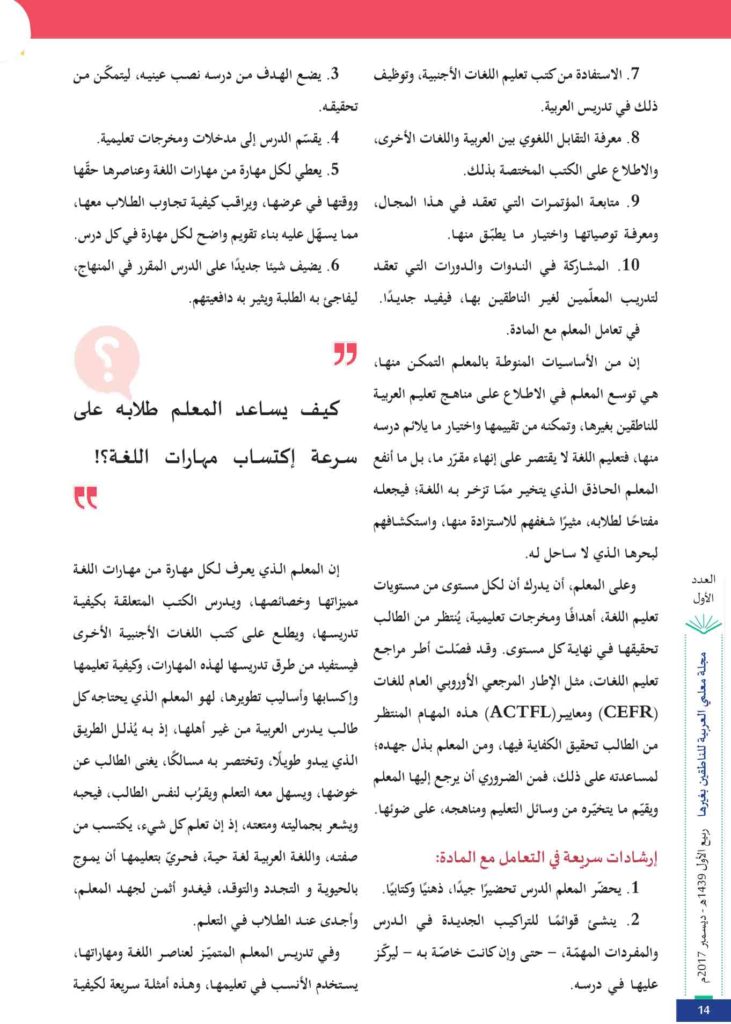 7. الاستفادة من كتب تعليم اللغات الأجنبية، وتوظيف
ذلك في تدريس العربية.
8. معرفة التقابل اللغوي بين العربية واللغات الأخرى،
والاطلاع على الكتب المختصة بذلك.
9. متابعة المؤتمرات التي تعقد في هذا المجال،
ومعرفة توصياتها واختيار ما يطبّق منها.
10. المشاركة في الندوات والدورات التي تعقد
لتدريب المعلّمين لغير الناطقين بها، فيفيد جديدًا.
في تعامل المعلم مع المادة.
إن من الأساسيات المنوطة بالمعلم التمكن منها،
هي توسع المعلم في الاطلاع على مناهج تعليم العربية
للناطقين بغيرها، وتمكنه من تقييمها واختيار ما يلائم درسه
منها، فتعليم اللغة لا يقتصر على إنهاء مقرّر ما، بل ما أنفع
المعلم الحاذق الذي يتخير ممّا تزخر به اللغة؛ فيجعله
مفتاحًا لطلابه، مثيرًا شغفهم للاستزادة منها، واستكشافهم
لبحرها الذي لا ساحل له.
وعلى المعلم، أن يدرك أن لكل مستوى من مستويات
تعليم اللغة، أهدافًا ومخرجات تعليمية، يُنتظر من الطالب
تحقيقها في نهاية كل مستوى. وقد فصّلت أطر مراجع
تعليم اللغات، مثل الإطار المرجعي الأوروبي العام للغات
(CEFR) ومعايير(ACTFL) هذه المهام المنتظر
من الطالب تحقيق الكفاية فيها، ومن المعلم بذل جهده؛
لمساعدته على ذلك، فمن الضروري أن يرجع إليها المعلم
ويقيّم ما يتخيّره من وسائل التعليم ومناهجه، على ضوئها.
إرشادات سريعة في التعامل مع المادة:
1. يحضّر المعلم الدرس تحضيرًا جيدًا، ذهنيًا وكتابيًا.
2. ينشئ قوائمًا للتراكيب الجديدة في الدرس
والمفردات المهمّة، – حتى وإن كانت خاصّة به – ليركّز
عليها في درسه.
3. يضع الهدف من درسه نصب عينيه، ليتمكّن من
تحقيقه.
4. يقسّم الدرس إلى مدخلات ومخرجات تعليمية.
5. يعطي لكل مهارة من مهارات اللغة وعناصرها حقّها
ووقتها في عرضها، ويراقب كيفية تجاوب الطلاب معها،
مما يسهّل عليه بناء تقويم واضح لكل مهارة في كل درس.
6. يضيف شيئا جديدًا على الدرس المقرر في المنهاج،
ليفاجئ به الطلبة ويثير به دافعيتهم.
؟
"
كيف يساعد المعلم طلابه على
سرعة إكتساب مهارات اللغة؟!
"
إن المعلم الذي يعرف لكل مهارة من مهارات اللغة
مميزاتها وخصائصها، ويدرس الكتب المتعلقة بكيفية
تدريسها، ويطلع على كتب اللغات الأجنبية الأخرى
فيستفيد من طرق تدريسها لهذه المهارات، وكيفية تعليمها
وإكسابها وأساليب تطويرها، لهو المعلم الذي يحتاجه كل
طالب يدرس العربية من غير أهلها، إذ به يُذلل الطريق
الذي يبدو طويلًا، وتختصر به مسالكًا، يغنى الطالب عن
خوضها، ويسهل معه التعلم ويقرُب لنفس الطالب، فيحبه
ويشعر بجماليته ومتعته، إذ إن تعلم كل شيء، يكتسب من
صفته، واللغة العربية لغة حية، فحريّ بتعليمها أن يموج
بالحيوية و التجدد والتوقد، فيغدو أثمن لجهد المعلم،
وأجدى عند الطلاب في التعلم.
وفي تدريس المعلم المتميّز لعناصر اللغة ومهاراتها،
يستخدم الأنسب في تعليمها، وهذه أمثلة سريعة لكيفية
العدد
الأول
مجلة معلمي العربية للناطقين بغيرها ربيع الأول 1439هـ - ديسمبر 2017م
14